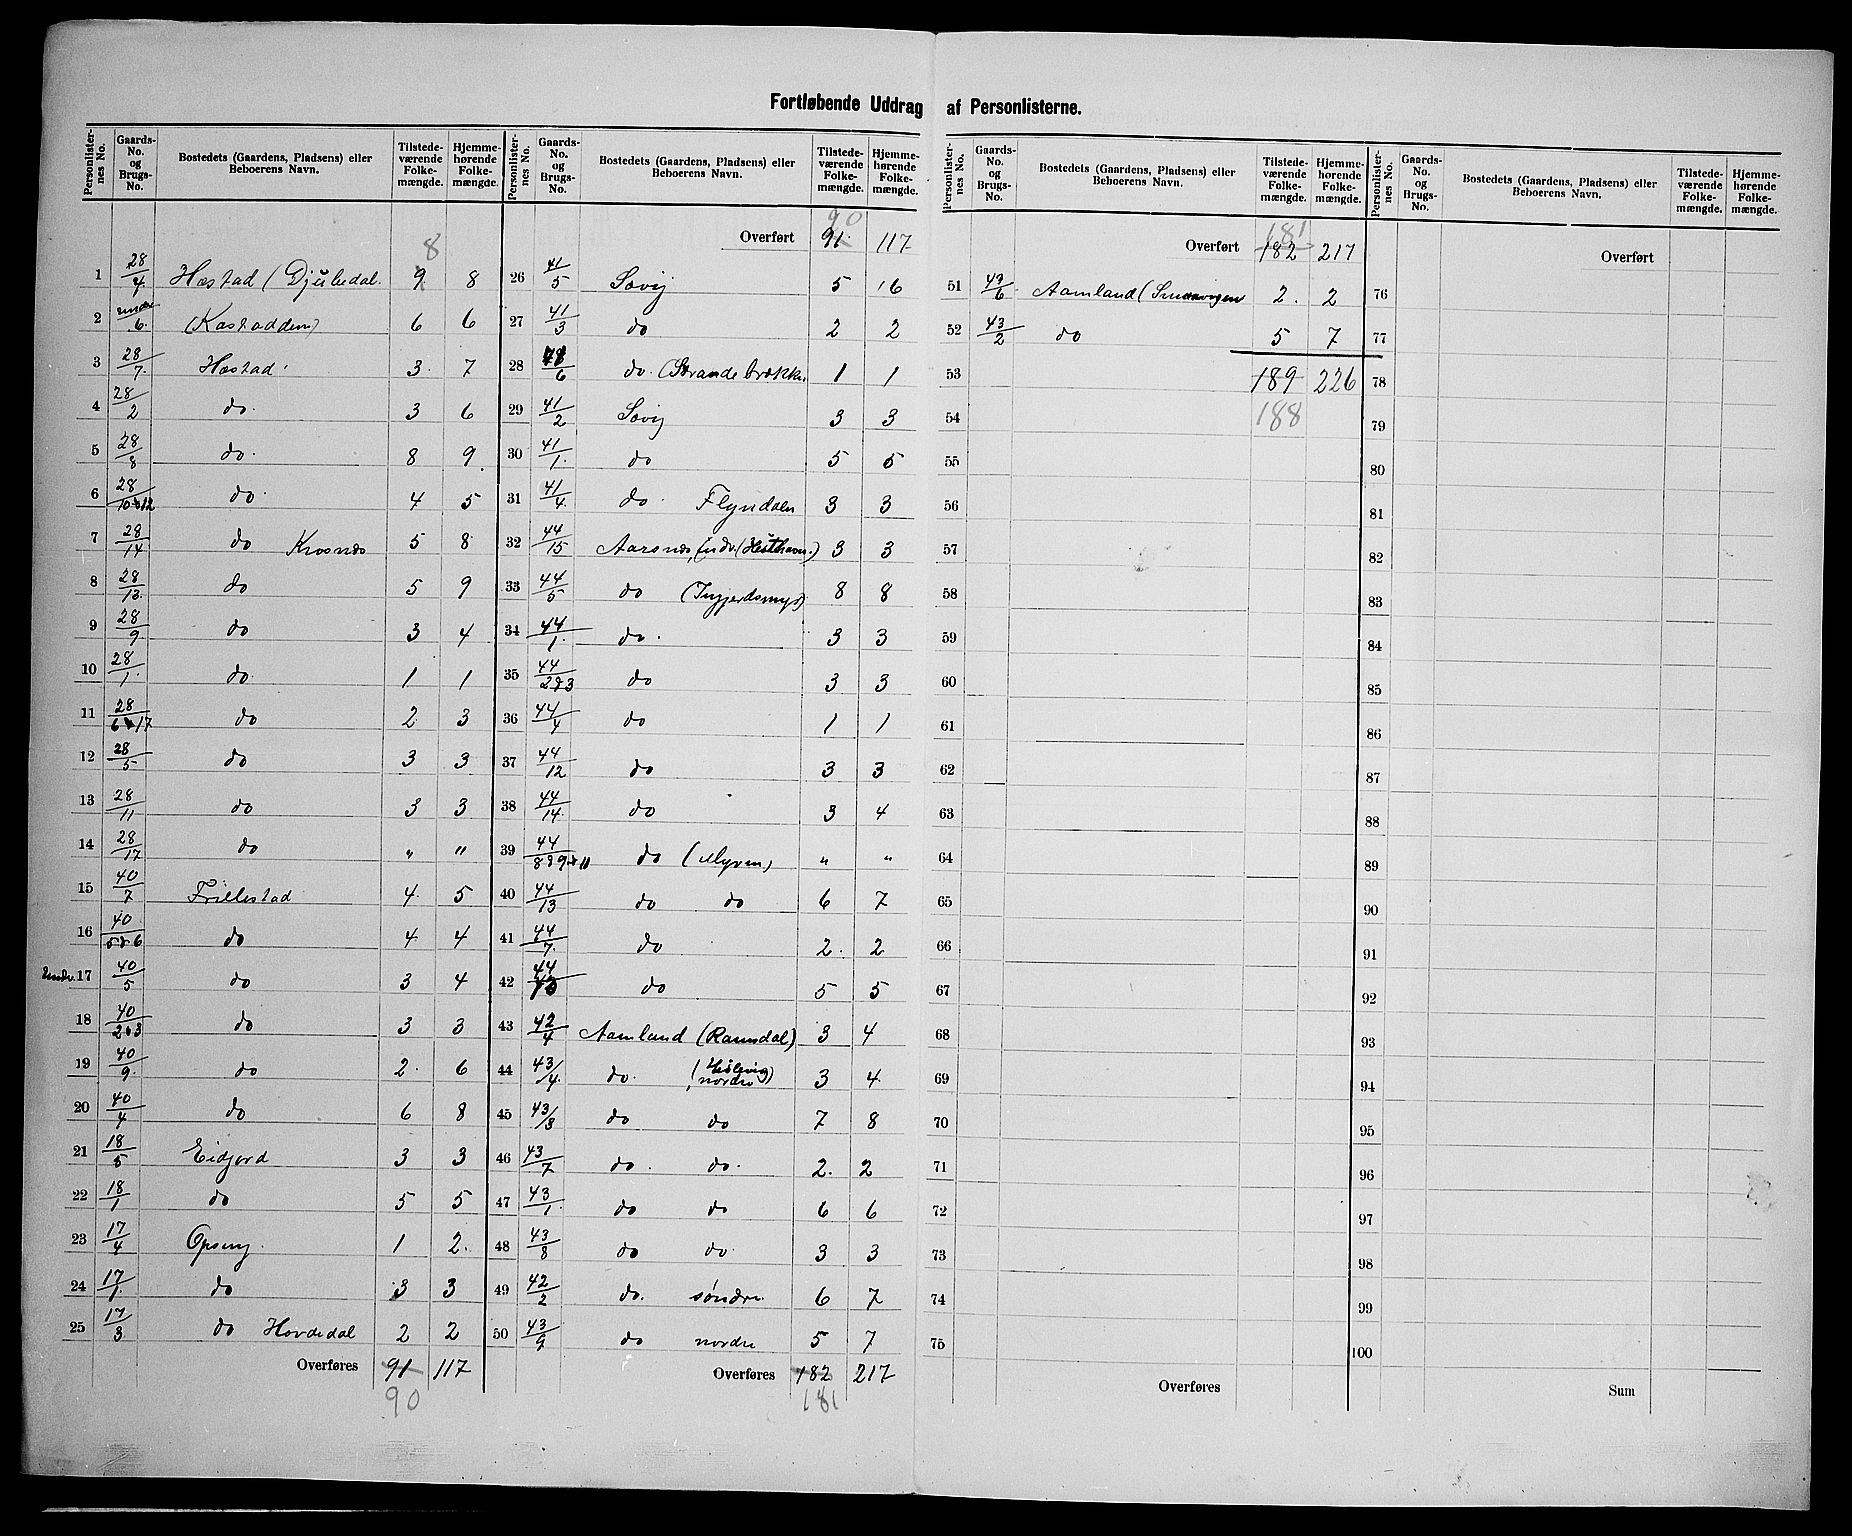 Fortløbende Uddrag af Personlisterne.
Personlisternes No. | Gaards-No. og Brugs-No. | Bostedets (Gaardens, Pladsen) eller Beboerens Navn. | Tilstedeværende Folkemængde. | Hjemmehørende Folkemængde.
8
1 28/4 Hæstad (Djubedal. 9 8
2 6. (Kastadden) 6 6
3 28/7. Hæstad 3. 7
4 28/2 do. 3 6
5 28/8 do. 8 9.
6 28/10&12 do. 4 5
7 28/14 do Krosnæs 5 8
8 28/13. do 5 9
9 28/9. do 3 4
10 28/1. do. 1 1
11 28/6&17 do 2 3
12 28/5 do 3 3
13 28/11 do 3 3
14 28/17 do " "
15 40/7 Frillestad 4. 5
16 40/5&6 do 4. 4
17 40/5 do 3 4
18 40/2&3 do 3 3
19 40/9. do 2. 6
20 40/4 do 6 8
21 18/5 Eidjord 3 3
22 18/1 do 5 5
23 17/4 Opsung. 1 2.
24 17/1. do 3 3
25 17/3 do Hovdedal 2 2
Overføres 91 117
90
90
Overført 91. 117
26 41/5 Søvig 5 6
27 41/3 do 2 2
28 6 do. (Strandebrække. 1 1
29 41/2 Søvig 3 3
30 41/1. do 5 5
31 41/4. do. Flyndalen 3 3
32 44/15 Aarsnæs, indv. (Hesthavn.) 3 3
33 44/5 do (Ingjerdsmyr) 8 8
34 44/1. do. 3 3
35 44/2&3 do 3. 3
36 44/4 do 1 1
37 44/12 do 3 3
38 44/14. do 3 4
39 44/8&9&11 do (Myren) " "
40 44/13 do do 6 7
41 44/7. do 2. 2
42 44/10 do 5 5
43 42/4 Aamland (Ramsdal) 3 4
44 43/4. do. nordre) 3 4.
45 43/3 do do 7 8
46 43/7 do. do. 2. 2
47 43/1. do do 6 6
48 43/8 do do. 3 3
49 42/2 do. søndre. 6 7
50 43/9 do nordre 5 7
Overføres 182 217
181
181
Overført 182 217
51 43/6 Aamland (Smaavigen 2. 2
52 43/2 do 5 7
53 189 226
54 188
55
56
57
58
59
60
61
62
63
64
65
66
67
68
69
70
71
72
73
74
75
Overføres
Overført
76
77
78
79
80
81
82
83
84
85
86
87
88
89
90
91
92
93
94
95
96
97
98
99
100
Sum